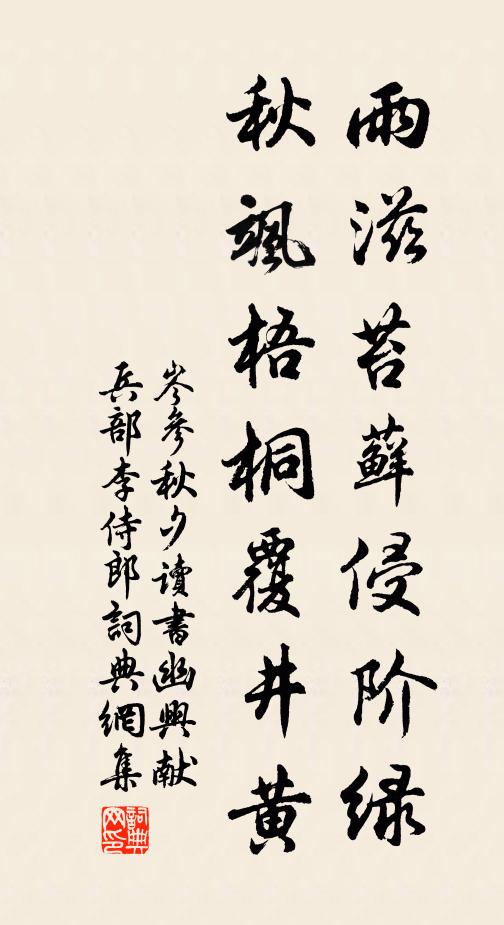 雨滋苔藓侵阶绿
秋颯梧桐覆井黄
岑參秋夕讀書幽興献
兵部李侍郎詞典網集
詞典
网印